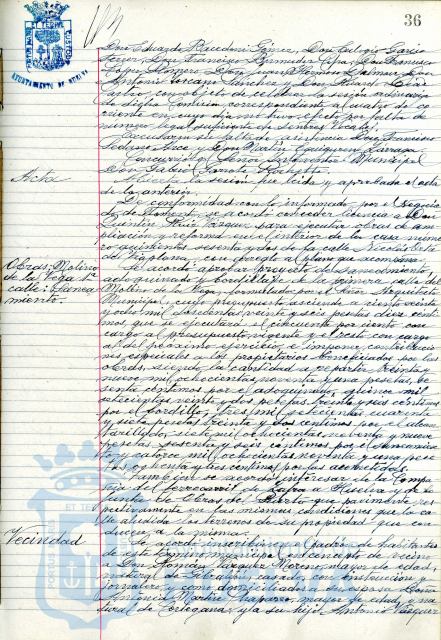 36
AYUNTAMIENTO DE HUELVA
Don Eduardo Racedoni Gómez, Don Eulogio García
Don Francisco Bermúdez Don Francisco
López Romero Don Juan Don
Antonio Sánchez y Don Ricardo
con objeto de celebrar la sesión ordinaria
de dicha Comisión correspondiente al cuatro de co
rriente en cuyo día no tuvo efecto por falta de
número legal suficiente de Señores Vocales.
Excusaron su falta de asistencia Don Francisco
y Don Martín
Concurrió el Señor Interventor Municipal
Don Gabriel
Acta
Abierta la sesión fue leída y aprobada el acta
de la anterior.
De conformidad con lo informado por el Negocia
do de Fomento, se acordó conceder licencia a Don
Quintín Ruiz para ejecutar obras de am
pliación y reforma en el interior de la casa núme
ro quinientos sesenta y dos de la calle
con arreglo al plano que acompaña.
Obras: Molino
de la Vega 1ª
calle: Sanea
miento.
Se acordó aprobar proyecto de saneamiento,
adoquinado y bordillado de la primera calle del
Molino de la Vega, formulado por el Señor Arquitecto
Municipal, cuyo presupuesto asciende a ciento veinte
y ocho mil doscientas veinte y seis pesetas diez cénti
mos, que se ejecutará el cincuenta por ciento con
cargo al presupuesto vigente y el resto con cargo
al del próximo ejercicio, e imponer contribucio
nes especiales a los propietarios beneficiados por las
obras, siendo la cantidad a repartir treinta y
nueve mil ochocientas noventa y una pesetas,
céntimos por el adoquinado, quince mil
setecientas veinte y dos pesetas treinta y seis céntimos
por el bordillo, tres mil setecientas cuarenta
y siete pesetas treinta y dos céntimos por el alcan
tarillado, siete mil ochocientas noventa y nueve
pesetas, sesenta y seis céntimos por el
y catorce mil ochocientas noventa y una pese
tas ochenta y tres céntimos por las acometidas.
También se acordó interesar de la Compa
ñía del ferrocarril de Zafra a Huelva y de la
Junta de Obras del Puerto que pavimente res
pectivamente en las mismas condiciones que la ca
lle aludida los terrenos de su propiedad que con
ducen a la misma.
Vecindad
Se acordó inscribir en el Padrón de habitantes
de este término municipal en concepto de vecino
a Don Román Vázquez Moreno, mayor de edad,
natural de casado, con instrucción y
jornalero y como domiciliados a su esposa Doña
Antonia Martín Chaparro, mayor de edad y na
tural de Cortegana y a su hijo Antonio Vázquez